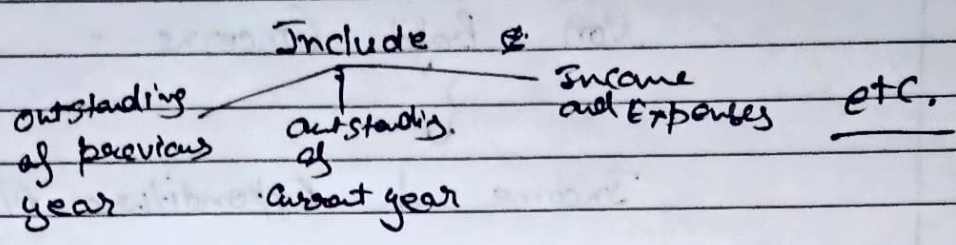 Include
outstanding
of previous
year
outstandig.
of
Current year
Income
and Expenses
etc.